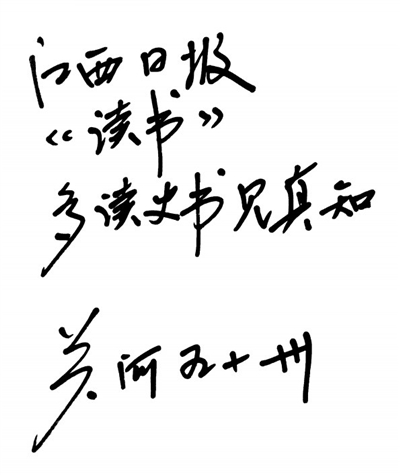 江西日报
《读书》
多读史书见真知
关河五十州